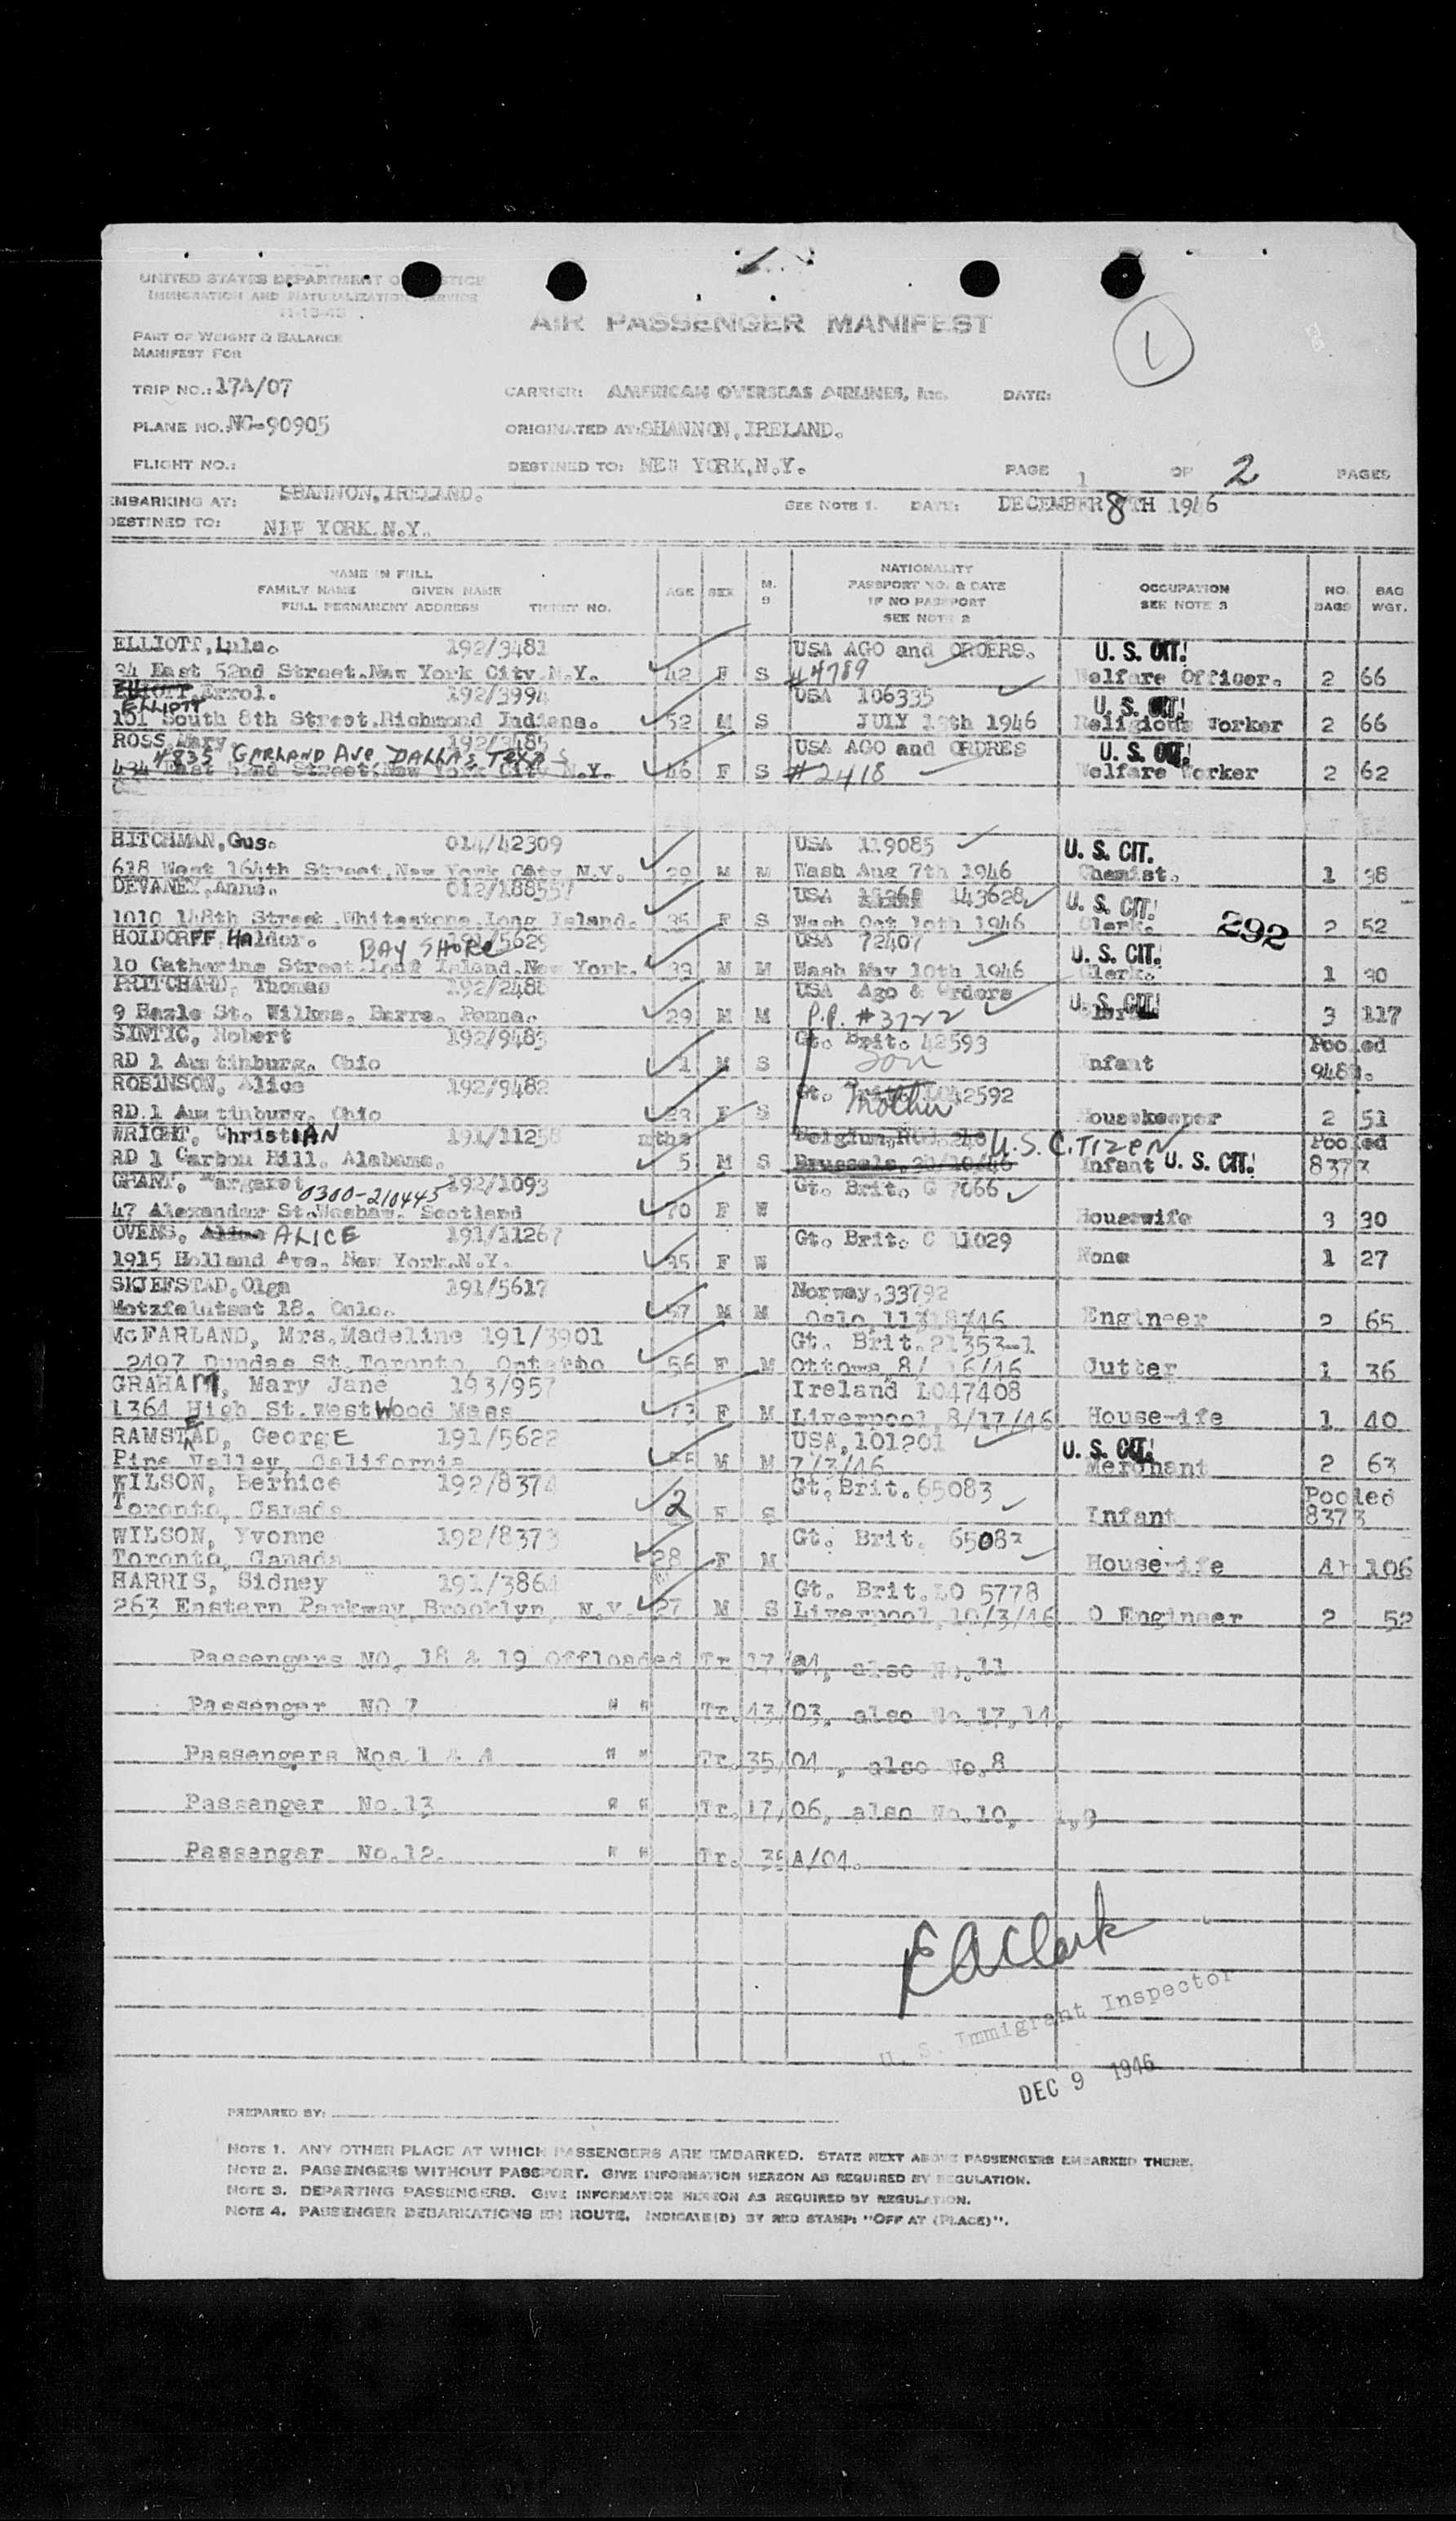 UNITED STATES DEPARTMENT OF JUSTICE
IMMIGRATION AND NATURALIZATION SERVICE
11-13-45
AIR PASSENGER MANIFEST
1
PART OF WEIGHT & BALANCE
MANIFEST FOR
TRIP NO.: 17A/07 CARRIER: AMERICAN OVERSEAS AIRLINES, Inc. DATE:
PLANE NO.: NC-90905 ORIGINATED AT: SHANNON, IRELAND.
FLIGHT NO.: DESTINED TO: NEW YORK, N.Y. PAGE 1 OF 2 PAGES
EMBARKING AT: SHANNON, IRELAND. SEE NOTE 1. DATE: DECEMBER 8TH 1946
DESTINED TO: NEW YORK.N.Y.
NAME IN FULL
FAMILY NAME GIVEN NAME
FULL PERMANENT ADDRESS TICKET NO. AGE SEX M. S NATIONALITY PASSPORT NO. & DATE IF NO PASSPORT SEE NOTE 2 OCCUPATION SEE NOTE 3 NO. BAGS BAG WGT.
ELLIOTT, Lula. 192/3481 USA AGO and ORDERS. U. S. CIT!
34 East 52nd Street.New York City.N.Y. 42 F S #4789 Welfare Officer. 2 66
ELLIOTT Errol. 192/3994 USA 106335 U. S. CIT!
101 South 8th Street.Richmond Indiana. 52 M S JULY 19th 1946 Religious Worker 2 66
ROSS, Mary. 192/3485 USA AGO and ORDRES U. S. CIT!
4835 GARLAND AVE DALLAS TEXAS
434 East 52nd Street.New York City N.Y. 46 F S #2418 Welfare Worker 2 62
HITCHMAN, Gus. 014/42309 USA 119085 U. S. CIT.
618 West 164th Street.New York City N.Y. 29 M M Wash Aug 7th 1946 Chemist. 1 38
DEVANEY, Anna. 012/188557 USA 143628 U. S. CIT!
1010 148th Street.Whitestone.Long Island. 35 F S Wash Oct 10th 1946 Clerk. 292 2 52
HOLDORFF, Haldor. BAY SHORE 191/5629 USA 72407 U. S. CIT.
10 Catherine Street.Long Island.New York. 39 M M Wash May 10th 1946 Clerk. 1 30
PRITCHARD, Thomas 192/2486 USA Ago & Orders U. S. CIT!
9 Hazle St. Wilkes. Barre. Penna. 29 M M P.P. #3722 3 117
SINTIC, Robert 192/9483 Gt. Brit. 42593 Pooled
RD 1 Austinburg. Ohio 1 M S Son Infant 9482.
ROBINSON, Alice 192/9482 Gt. Brit. 42592
RD.1 Austinburg. Ohio 23 F S Mother Housekeeper 2 51
WRIGHT, ChristIAN 191/11258 mths U.S. CITIZEN Pooled
RD 1 Carbon Hill. Alabama. 5 M S Brussels, 30/10/46 Infant U. S. CIT! 8373
GRANT, Margaret 0300-210445 192/1093 Gt. Brit. G 7066
47 Alexander St.Wishaw. Scotland 70 F W Housewife 3 30
OVENS, ALICE 191/11267 Gt. Brit. C 11029
1915 Holland Ave. New York.N.Y. 35 F W None 1 27
SKJEFSTAD, Olga 191/5617 Norway.33792
Motzfeldtsat 18. Oslo. 57 M M Oslo, Engineer 2 65
McFARLAND, Mrs.Madeline 191/3901 Gt. Brit.21353-1
2497 Dundas St.Toronto, Ontario 56 F M Ottowa,8/ 16/46 Cutter 1 36
GRAHAM, Mary Jane 193/957 Ireland LO47408
1364 High St.WestWood Mass 73 F M Liverpool,8/17/46 House-ife 1 40
RAMSTEAD, GeorgE 191/5622 USA,101201 U. S. CIT!
Pine Valley, California M M 7/3/46 Merchant 2 63
WILSON, Bernice 192/8374 Gt.Brit.65083 Pooled
Toronto, Canada 2 F S Infant 8373
WILSON, Yvonne 192/8373 Gt. Brit. 65082
Toronto, Canada 28 F M House-ife 4 106
HARRIS, Sidney 191/3864 Gt. Brit.LO 5778
263 Eastern Parkway,Brooklyn, N.Y. 27 M S Liverpool,10/3/46 O Engineer 2 52
Passengers NO, 18 & 19 Offloaded Tr 17/ also No.11
Passenger NO 7 " " Tr.43/03, also No.17,14,
Passengers Nos 1 & 4 " " Tr.35/04 , also No.8
Passenger No.13 " " Tr.17/06, also No.10,
Passenger No.12. " " Tr. 35A/04.
E A Clark
U. S. Immigrant Inspector
DEC 9 1946
PREPARED BY:
NOTE 1. ANY OTHER PLACE AT WHICH PASSENGERS ARE EMBARKED. STATE NEXT ABOVE PASSENGERS EMBARKED THERE.
NOTE 2. PASSENGERS WITHOUT PASSPORT. GIVE INFORMATION HEREON AS REQUIRED BY REGULATION.
NOTE 3. DEPARTING PASSENGERS. GIVE INFORMATION HEREON AS REQUIRED BY REGULATION.
NOTE 4. PASSENGER DEBARKATIONS EN ROUTE. INDICATE(D) BY RED STAMP: "OFF AT (PLACE)".